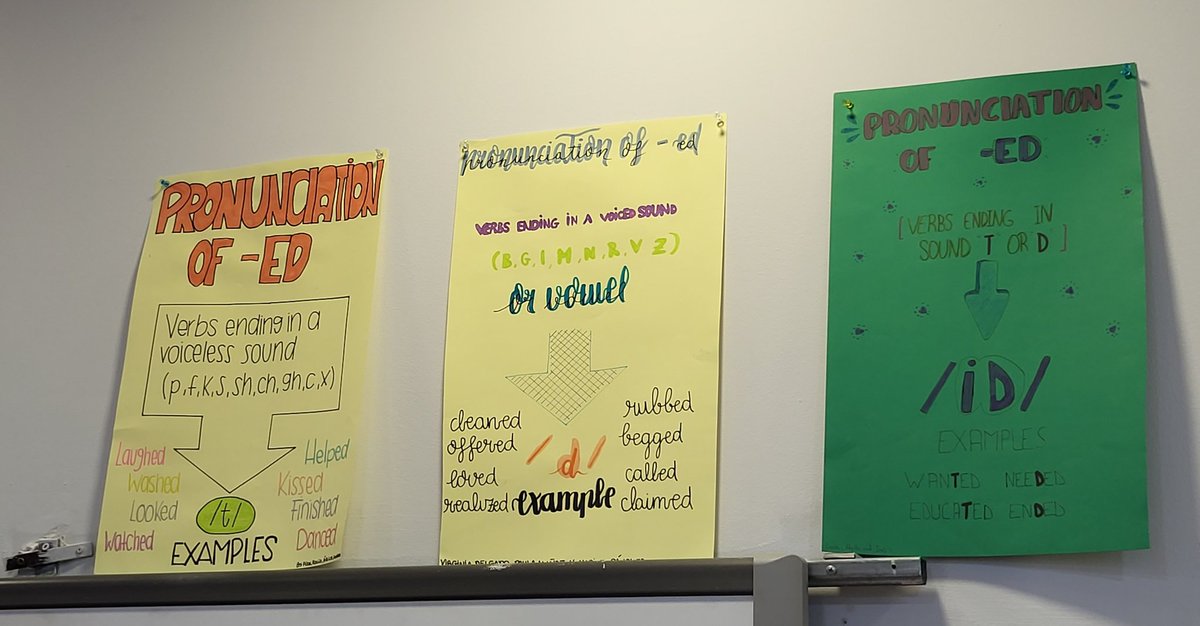 PRONUNCIATION
OF -ED
Verbs ending in a
voiceless sound
(p,f,k,s,sh,ch,gh,c,x)
Laughed
Washed
Looked
Watched
Helped
Kissed
Finished
Danced
/t/
EXAMPLES
pronunciation of -ed
VERBS ENDING IN A VOICED SOUND
(B,G,I,M,N,R,V Z)
or vowel
cleaned
offered
loved
realized
/d/
example
rubbed
begged
called
claimed
VIRGINIA DELGADO,
PRONUNCIATION
OF -ED
[VERBS ENDING IN
SOUND T OR D]
/iD/
EXAMPLES
WANTED NEEDED
EDUCATED ENDED